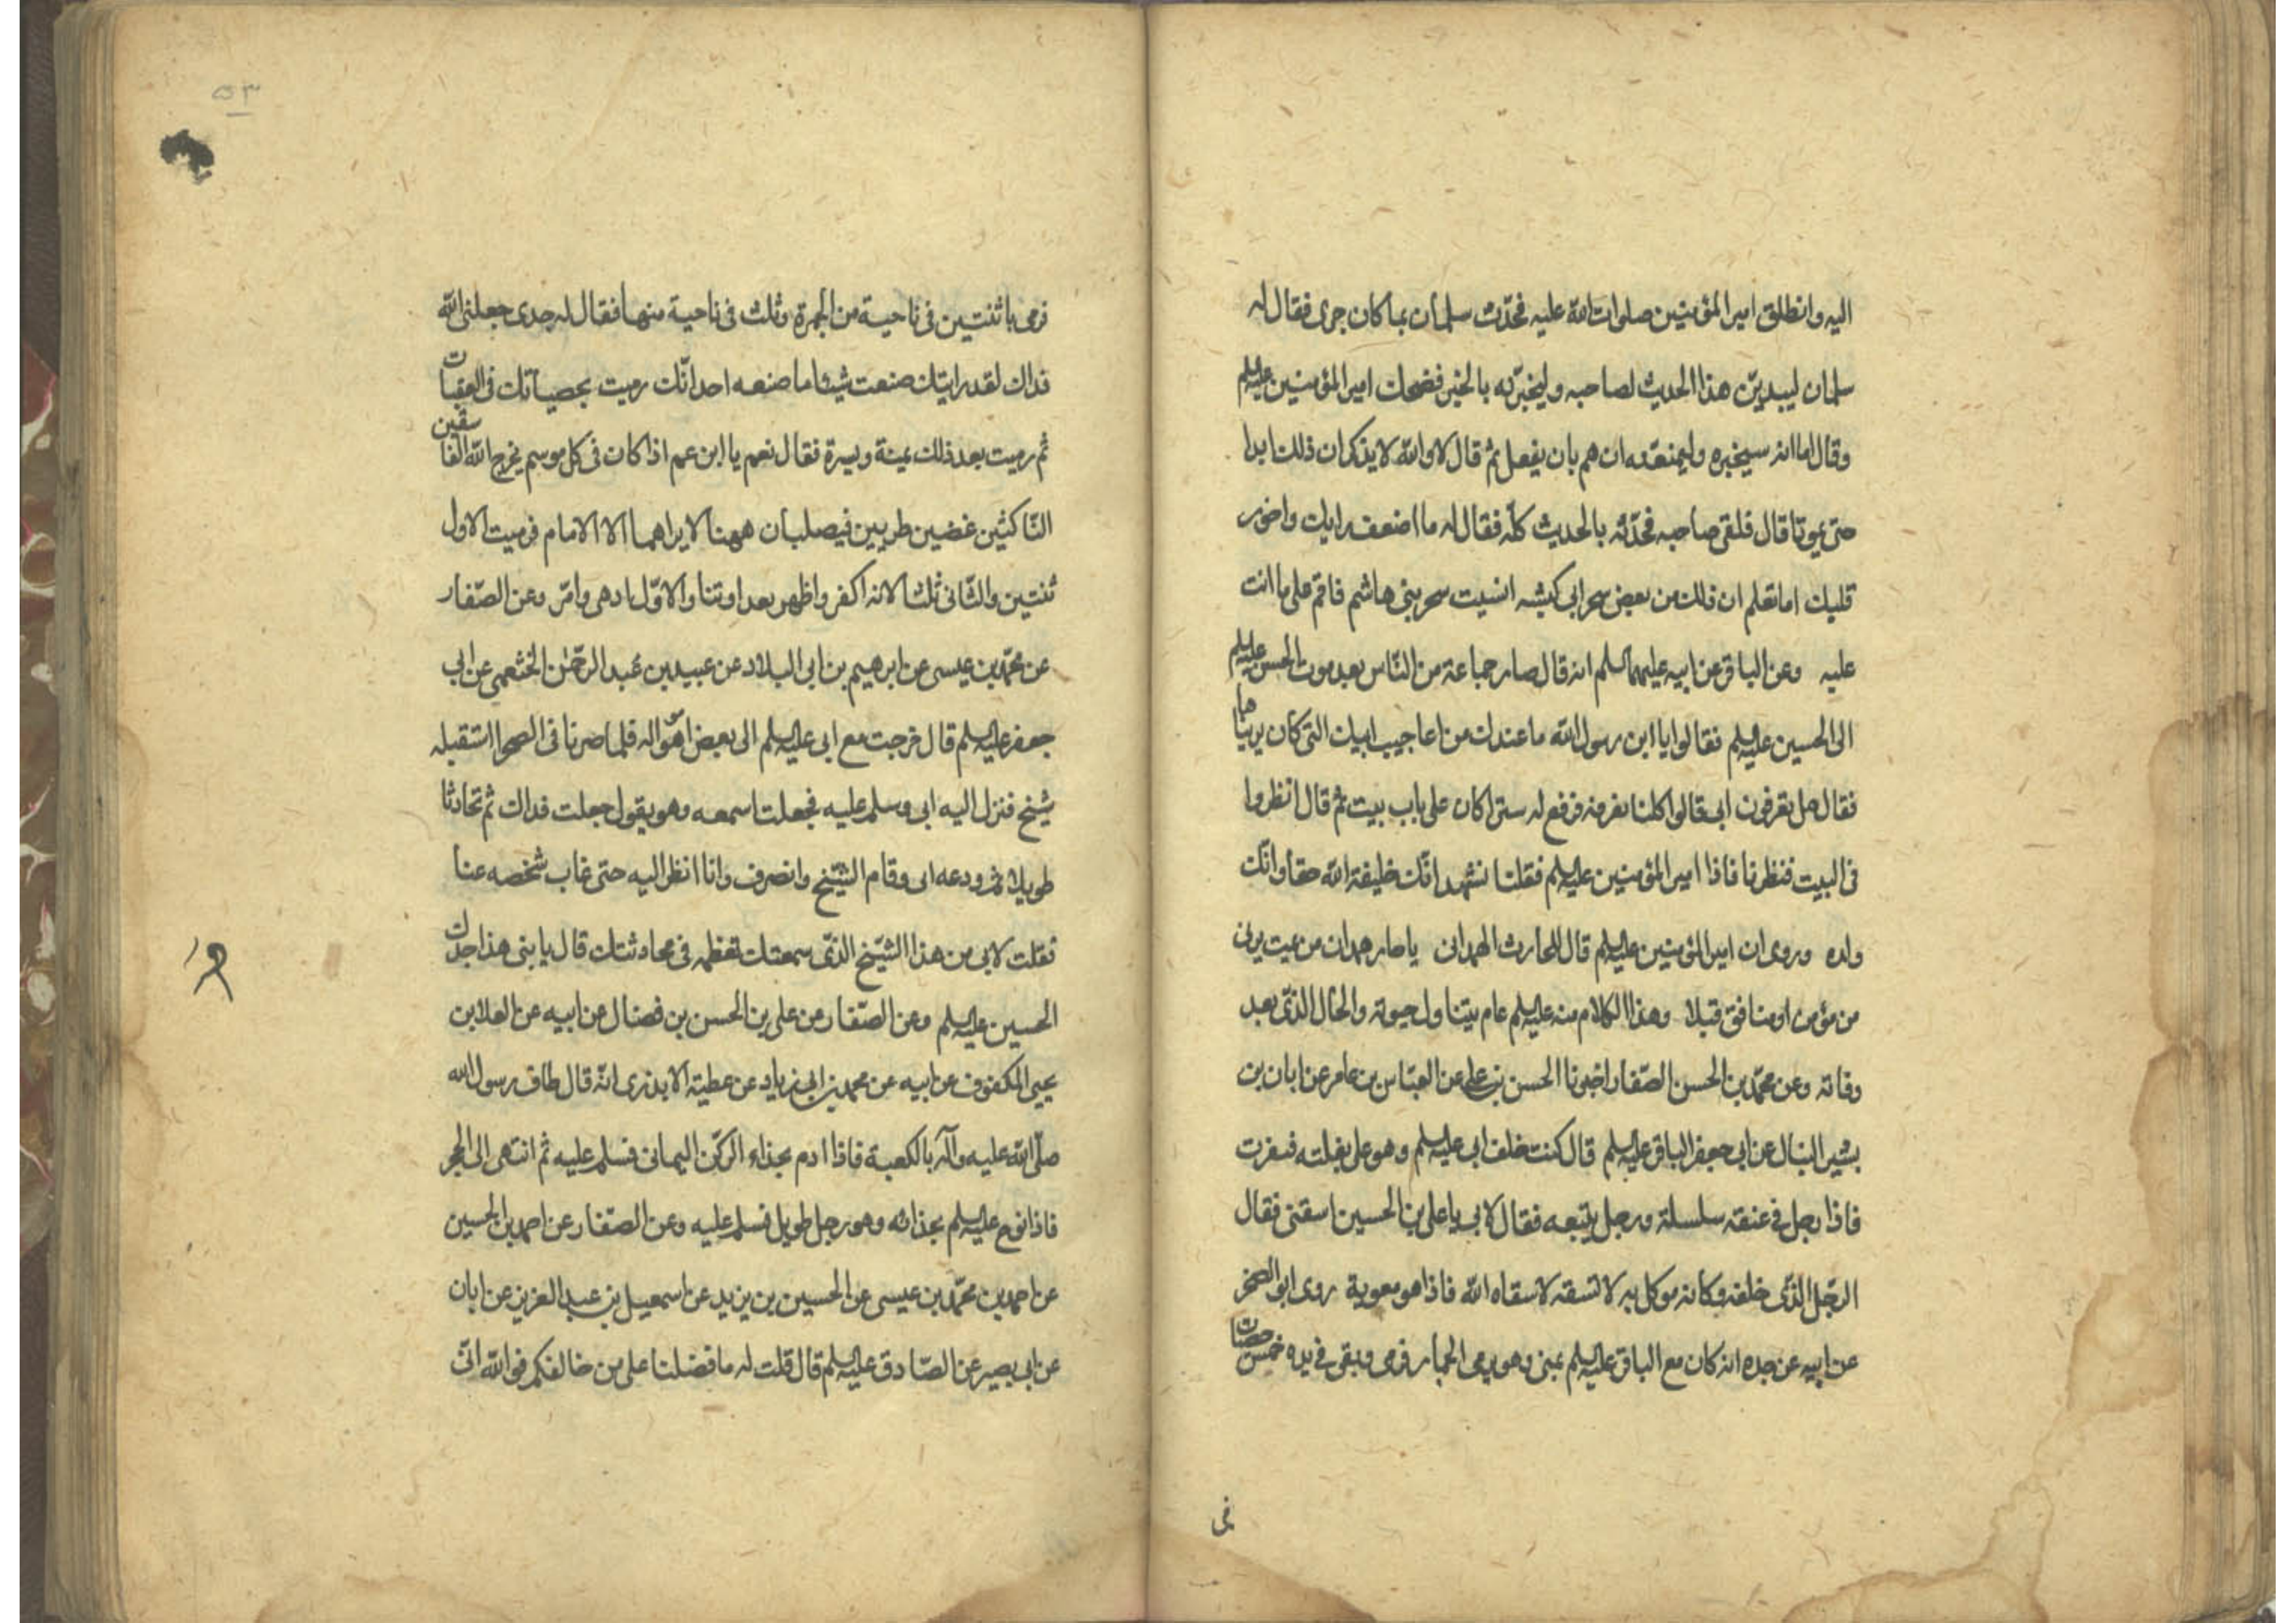 اليه وانطلق امير المؤمنين صلوات الله عليه فحدّث سلمان بما كان جرى فقال له
سلمان ليبدينّ هذا الحديث لصاحبه وليخبرنّه بالخبر فضحك امير المؤمنين عليه السلم
وقال اما انه سيخبره وليمنعنّه ان هم بان يفعل ثم قال لا والله لا يذكران ذلك ابدا
حتى يموتا قال فلقى صاحبه فحدّثه بالحديث كلّه فقال له ما اضعف رايك واخور
قلبك اما تعلم ان ذلك من بعض سحر ابى كبشه انسيت سحر بنى هاشم فاقم على ما انت
عليه وعن الباقر عن ابيه عليهما السلم انه قال صار جماعة من النّاس بعد موت الحسن عليه السلم
الى الحسين عليه السلم فقالوا يا ابن رسول الله ما عندك من اعاجيب ابيك التى كان يريناها
فقال هل تعرفون ابى قالوا كلنا نعرفه فرفع له سترا كان على باب بيت ثم قال انظروا
فى البيت فنظرنا فاذا امير المؤمنين عليه السلم فقلنا نشهد انّك خليفة الله حقا وانّك
ولده وروى ان امير المؤمنين عليه السلم قال للحارث الهمدانى يا حار همدان من يمت يرنى
من مؤمن او منافق قبلا وهذا الكلام منه عليه السلم عام يتناول حيوته والحال الذى بعد
وفاته وعن محمّد بن الحسن الصّفار اخبرنا الحسن بن على عن العبّاس بن عامر عن ابان بن
بشير النبال عن ابى جعفر الباقر عليه السلم قال كنت خلف ابى عليه السلم وهو على بغلته فنفرت
فاذا رجل فى عنقه سلسلة ورجل يتبعه فقال لابى يا على بن الحسين اسقنى فقال
الرجل الذى خلفه وكانه موكل به لا تسقه لا سقاه الله فاذا هو معوية روى ابو الصخر
عن ابيه عن جده انه كان مع الباقر عليه السلم بمنى وهو يرمى الجمار فرمى وبقى فى يده خمس حصيات
فى
٥٣
فرمى باثنتين فى ناحية من الجمرة وثلث فى ناحية منها فقال له جدى جعلنى الله
فداك لقد رايتك صنعت شيئا ما صنعه احد انّك رميت بحصياتك فى العقبات
ثم رميت بعد ذلك يمنة ويسرة فقال نعم يا ابن عم اذا كان فى كل موسم يخرج الله الفاسقين
النّاكثين غضين طريين فيصلبان ههنا لا يراهما الا الامام فرميت الاول
ثنتين والثّانى ثلثا لانه اكفر واظهر بعداوتنا والاوّل ادهى وامرّ وعن الصّفار
عن محمّد بن عيسى عن ابرهيم بن ابى البلاد عن عبيد بن عبد الرحمن الخثعمى عن ابى
جعفر عليه السلم قال خرجت مع ابى عليه السلم الى بعض امواله فلما صرنا فى الصحرا استقبله
شيخ فنزل اليه ابى وسلم عليه فجعلت اسمعه وهو يقول جعلت فداك ثم تحادثا
طويلا ثم ودعه ابى وقام الشّيخ وانصرف وانا انظر اليه حتى غاب شخصه عنا
فقلت لابى من هذا الشّيخ الذى سمعتك تعظمه فى محادثتك قال يا بنى هذا جدك
الحسين عليه السلم وعن الصّفار عن على بن الحسن بن فضال عن ابيه عن العلا بن
يحيى المكفوف عن ابيه عن محمد بن ابى زياد عن عطية الابذرى انّه قال طاف رسول الله
صلّى الله عليه وآله بالكعبة فاذا ادم بحذاء الركن اليمانى فسلم عليه ثم انتهى الى الحجر
فاذا نوح عليه السلم بحذائه وهو رجل طويل فسلم عليه وعن الصّفار عن احمد بن الحسين
عن احمد بن محمّد بن عيسى عن الحسين بن يزيد عن اسمعيل بن عبد العزيز عن ابان
عن ابى بصير عن الصّادق عليه السلم قال قلت له ما فضلنا على من خالفكم فوالله انّى